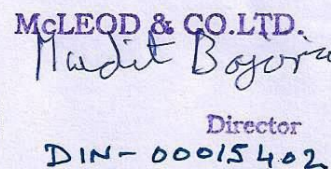 McLEOD & CO.LTD.
Mudit Bajoria
Director
DIN- 00015402